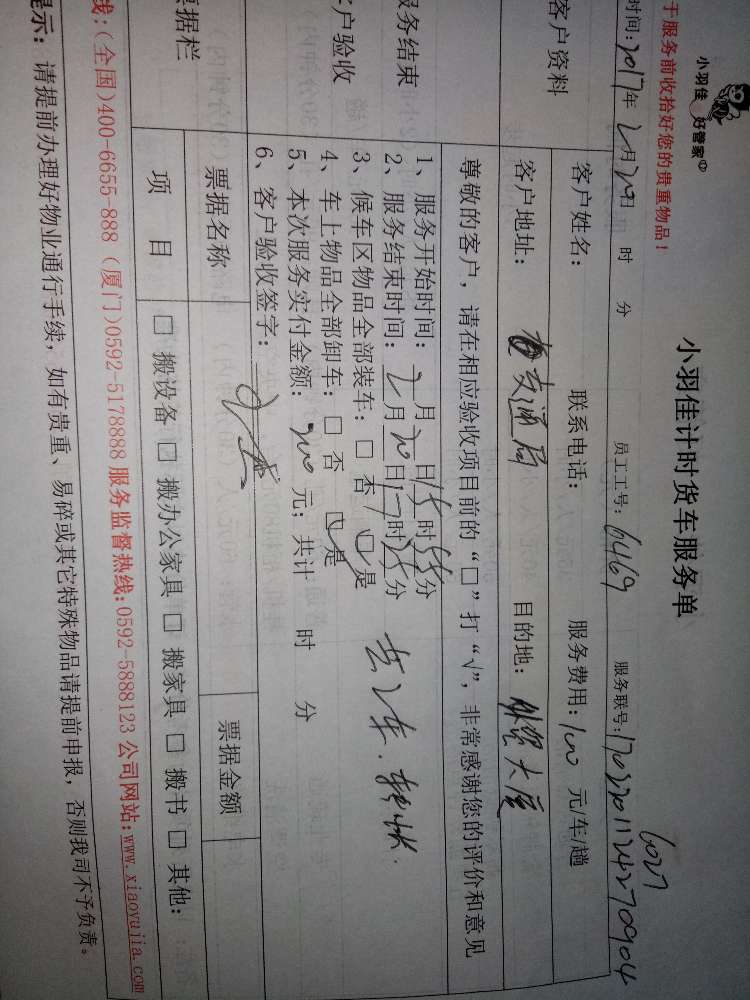 小羽佳 好管家
小羽佳计时货车服务单
于服务前收拾好您的贵重物品！
时间：2017年2月20日 时 分 员工工号：6469 服务联号：
6027
客户资料
客户姓名： 联系电话： 服务费用：100 元/车/趟
客户地址： 交通局 目的地： 外贸大厦
尊敬的客户，请在相应验收项目前的“□”打“√”，非常感谢您的评价和意见
服务结束
客户验收
1、服务开始时间： 月 日15时55分
2、服务结束时间：2月20日17时25分
3、候车区物品全部装车：□ 否 □ 是
4、车上物品全部卸车：□ 否 □ 是
5、本次服务实付金额：200 元；共计 时 分
6、客户验收签字：
票据栏
票据名称 票据金额
项 目 □ 搬设备 □ 搬办公家具 □ 搬家具 □ 搬书 □ 其他：
线：(全国)400-6655-888 (厦门)0592-5178888 服务监督热线：0592-5888123 公司网站：www.xiaoyujia.com
提示：请提前办理好物业通行手续，如有贵重、易碎或其它特殊物品请提前申报，否则我司不予负责。